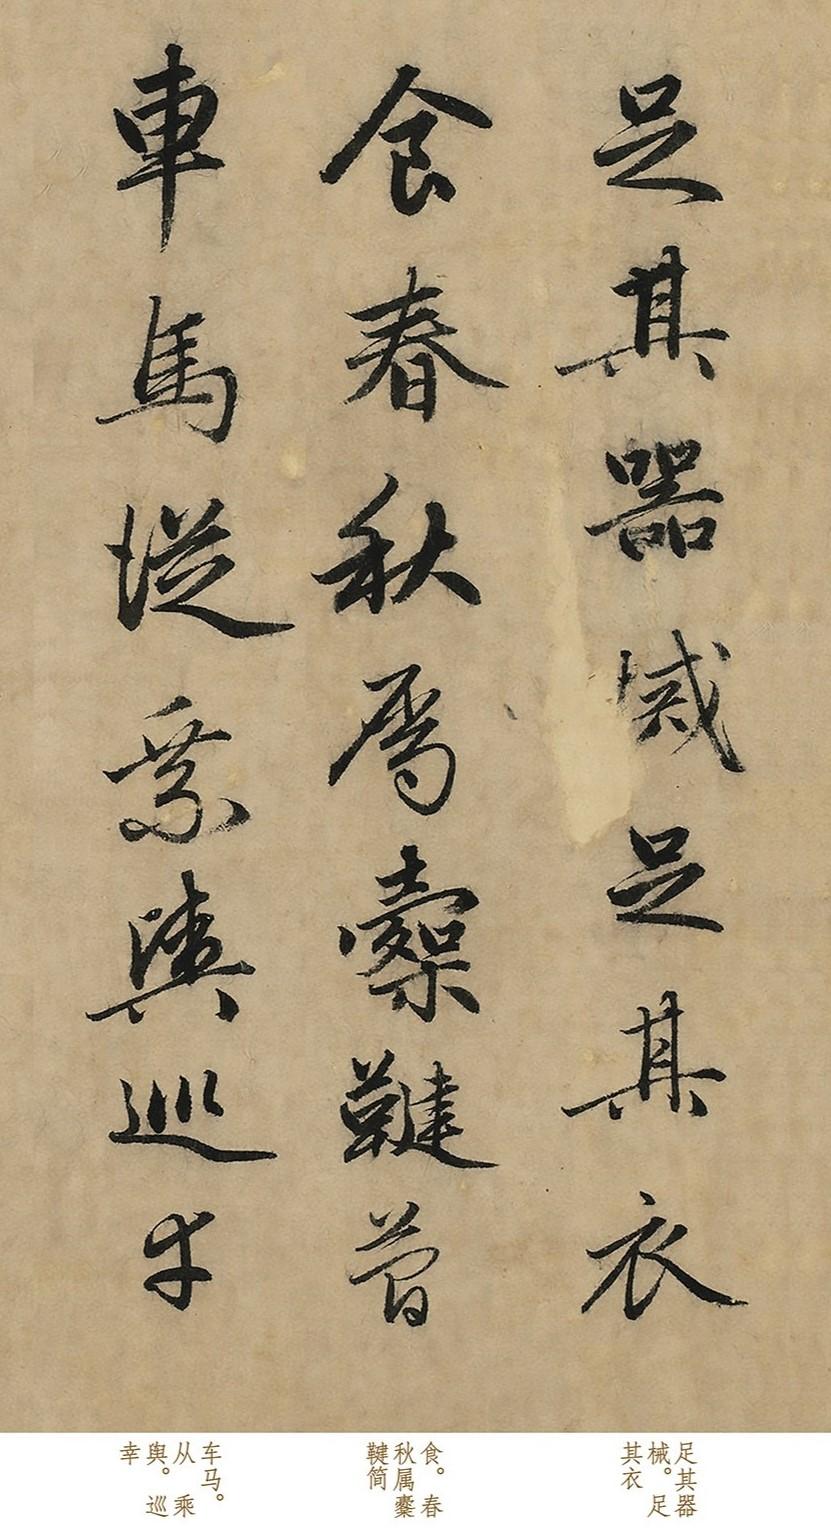 足其器械足其衣
食春秋属櫜鞬簡
車馬從乘輿巡幸
足其器
械。足
其衣
食。春
秋属櫜
鞬简
车马。
从 乘
舆。巡
幸